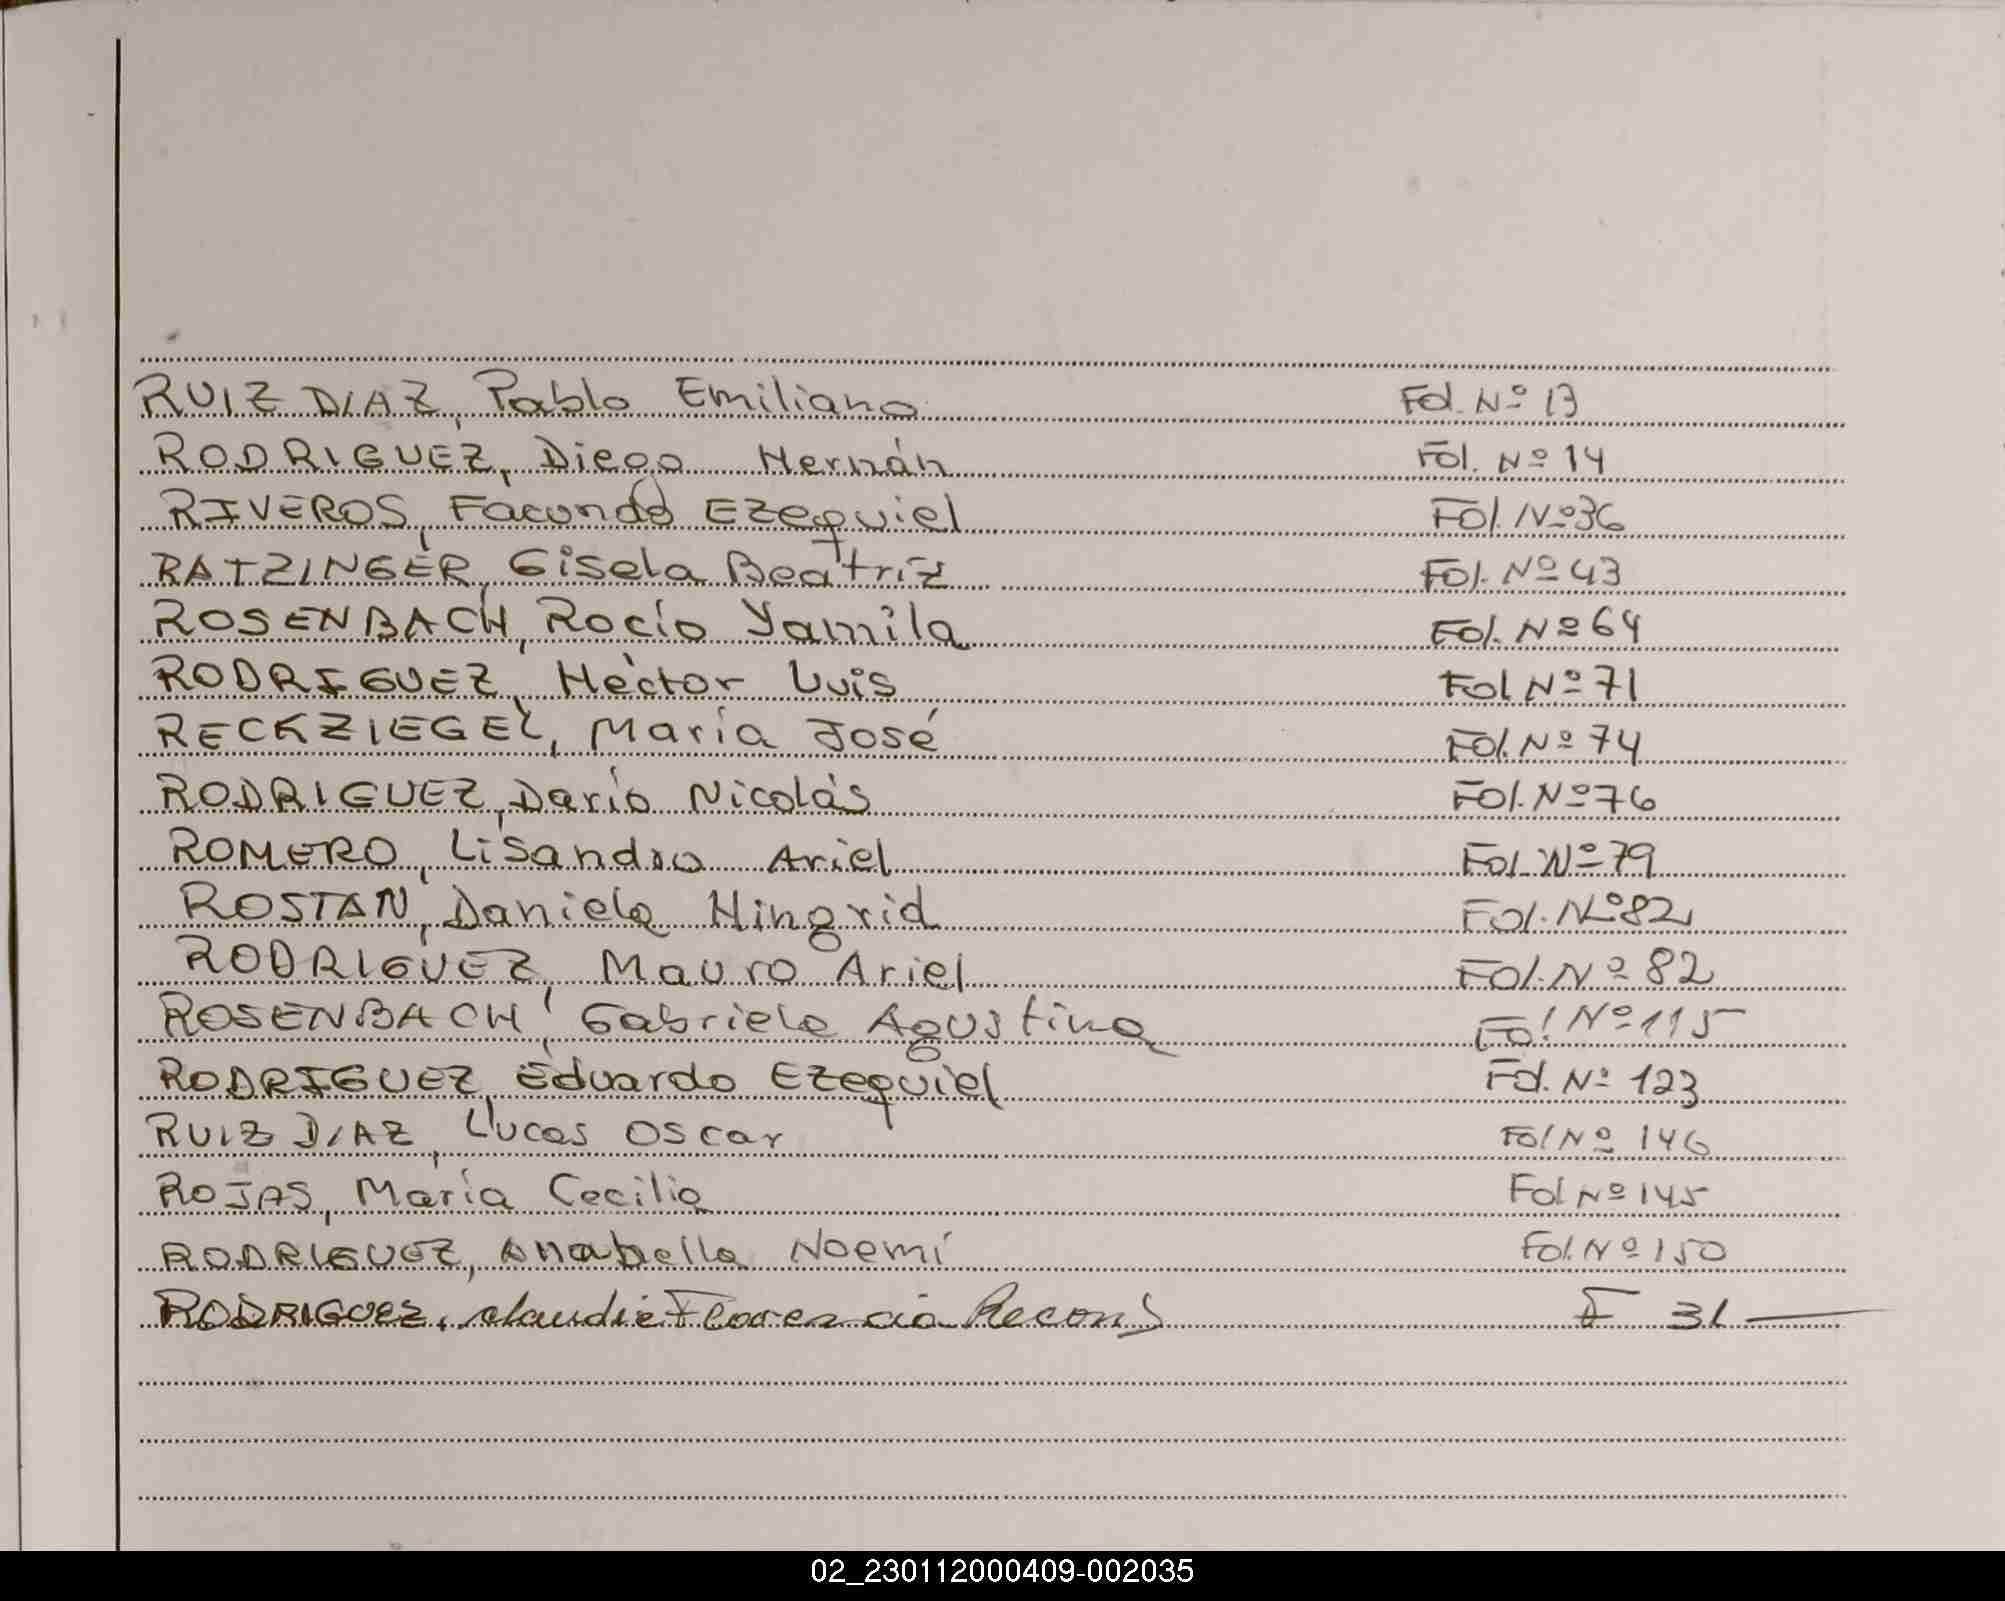 RUIZ DIAZ, Pablo Emiliano Fol. Nº 13
RODRIGUEZ, Diego Hernán Fol. Nº 14
RIVEROS, Facundo Ezequiel Fol. Nº 36
RATZINGER, Gisela Beatriz Fol. Nº 43
ROSENBACH, Rocío Yamila Fol. Nº 64
RODRIGUEZ, Héctor Luis Fol Nº 71
RECKZIEGEL, María José Fol. Nº 74
RODRIGUEZ, Darío Nicolás Fol. Nº 76
ROMERO, Lisandro Ariel Fol. Nº 79
ROSTAN, Daniela Hingrid Fol. Nº 82
RODRIGUEZ, Mauro Ariel Fol. Nº 82
ROSENBACH, Gabriela Agustina Fol Nº 115
RODRIGUEZ, Eduardo Ezequiel Fol. Nº 123
RUIZ DIAZ, Lucas Oscar Fol Nº 146
ROJAS, María Cecilia Fol Nº 145
RODRIGUEZ, Anabella Noemí Fol. Nº 150
RODRIGUEZ, Claudia Florencia Recon F 31
02_230112000409-002035